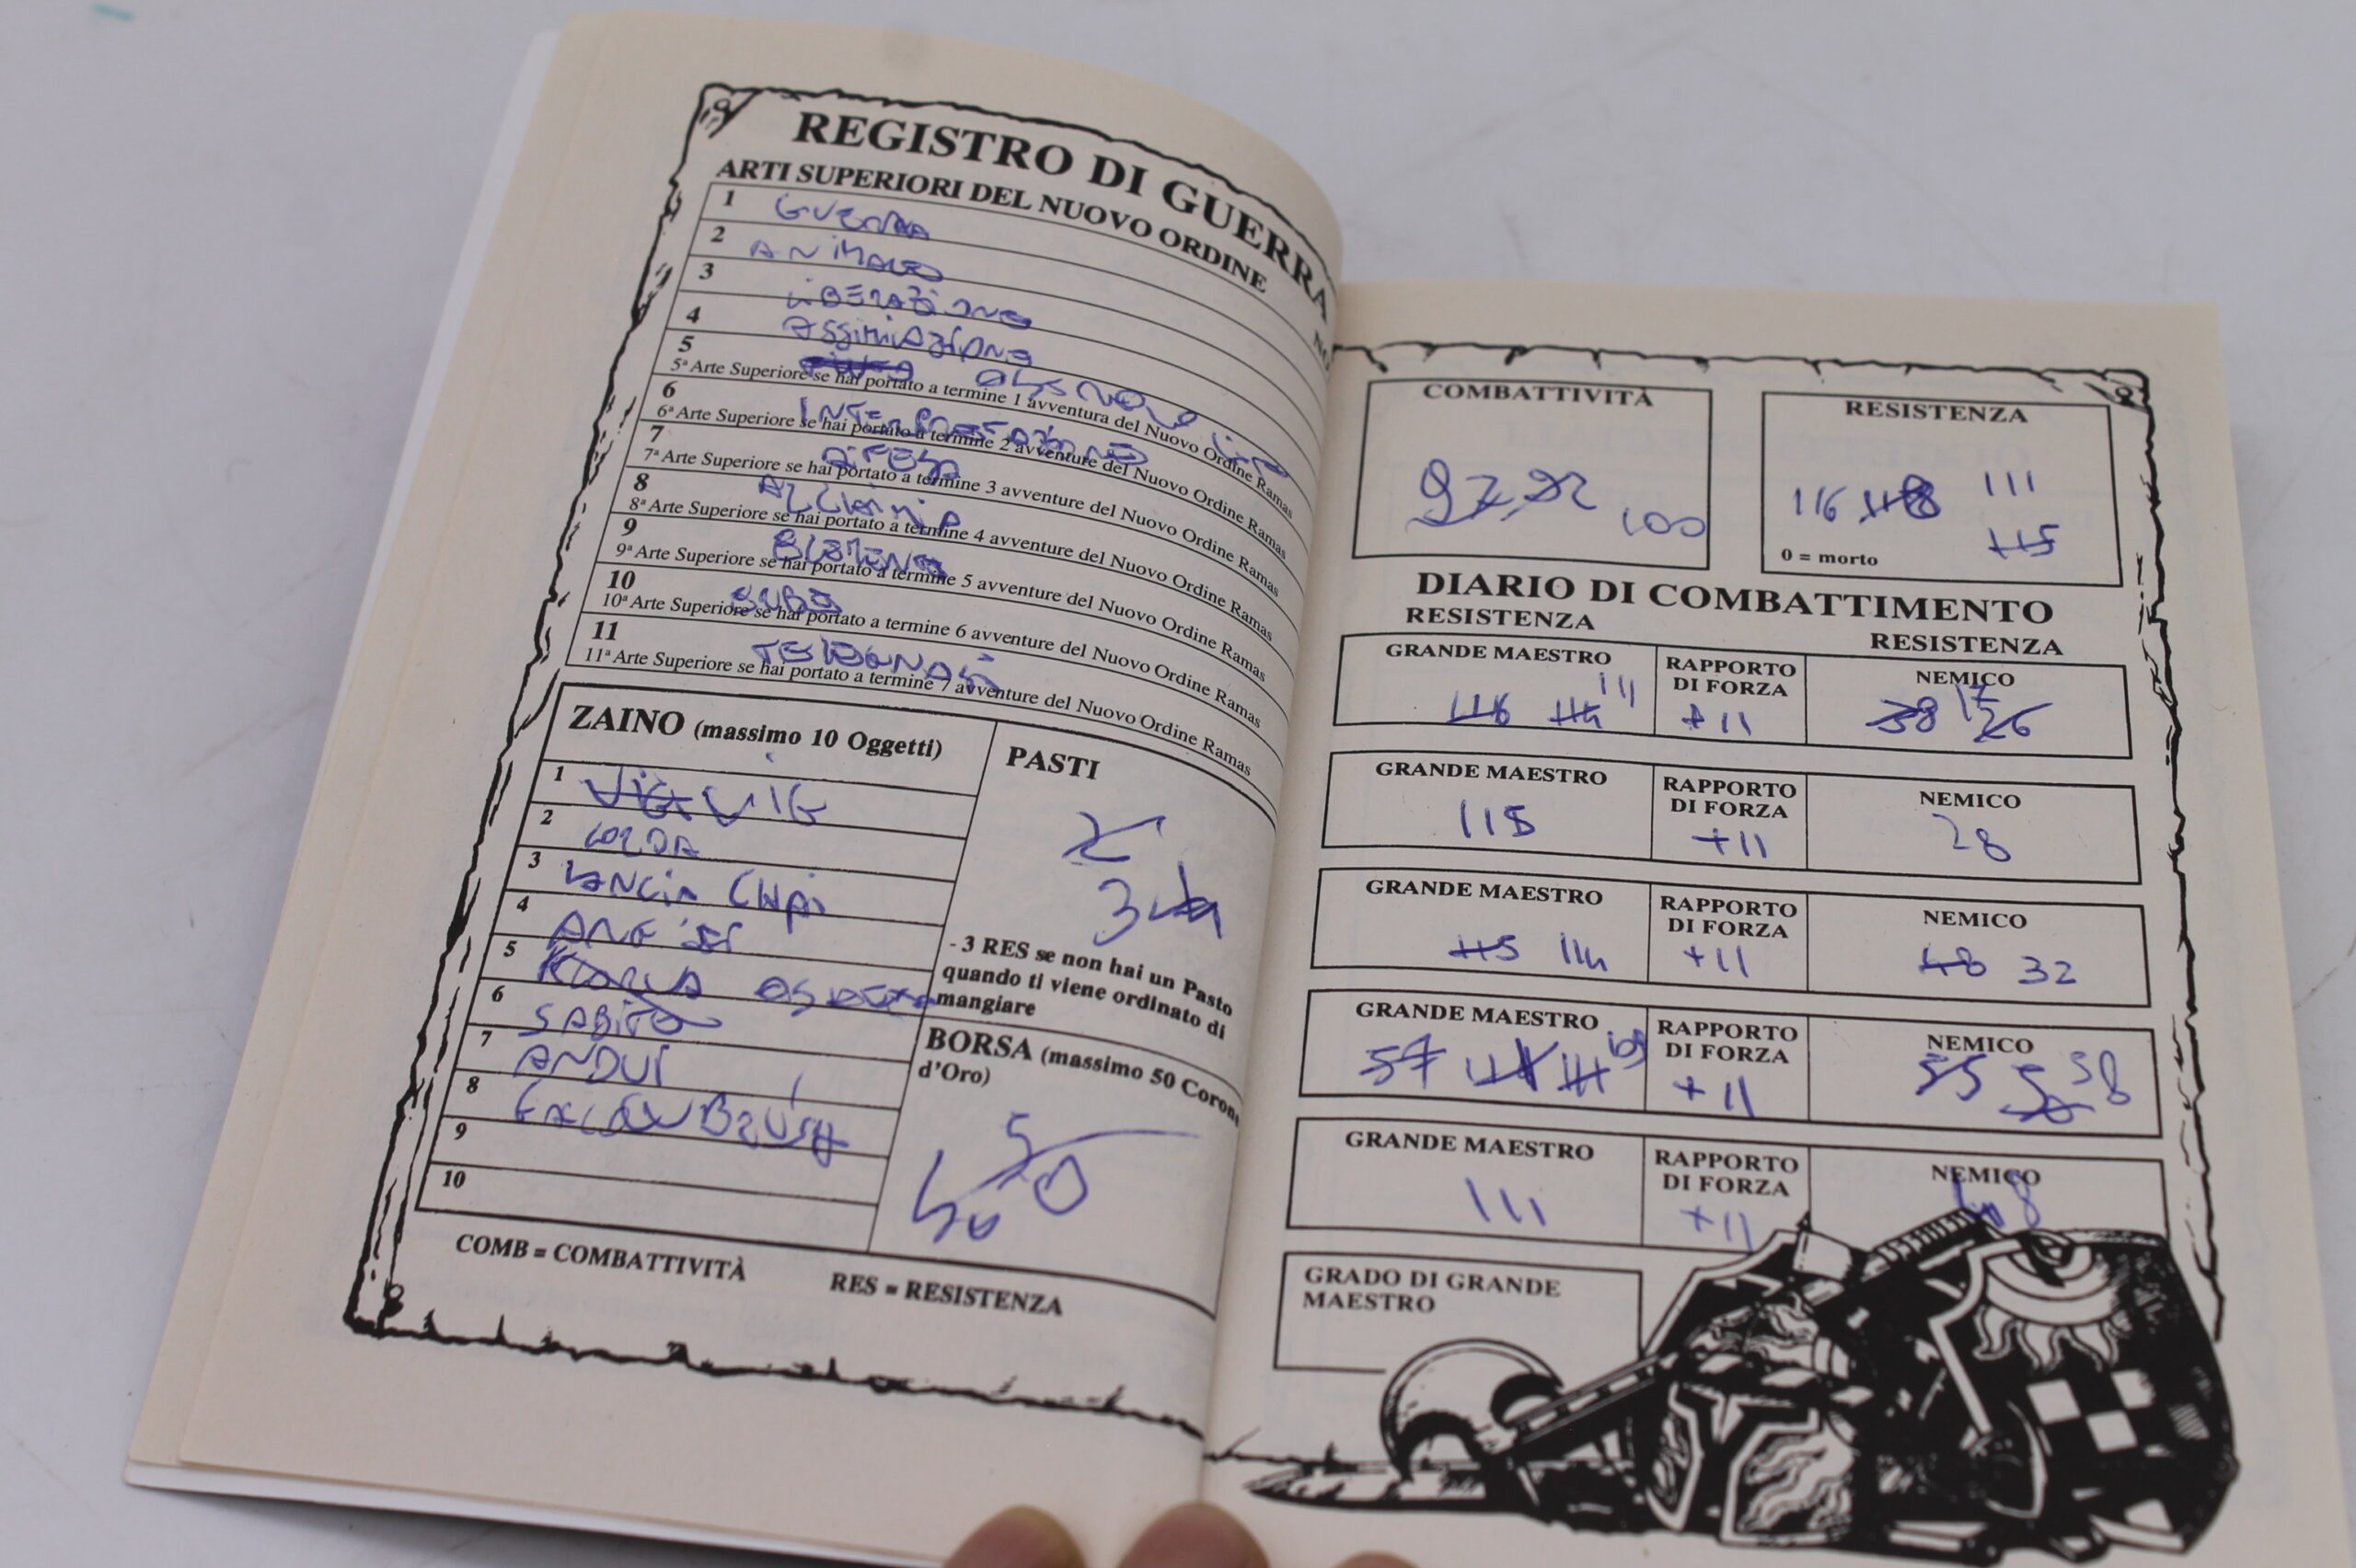 REGISTRO DI GUERRA
ARTI SUPERIORI DEL NUOVO ORDINE
1 GUERRA
2 ANIMALE
3 LIBERAZIONE
4 ASSIMILAZIONE
5
5ª Arte Superiore se hai portato a termine 1 avventura del Nuovo Ordine Ramas
6 INTERPRETAZIONE
6ª Arte Superiore se hai portato a termine 2 avventure del Nuovo Ordine Ramas
7 DIFESA
7ª Arte Superiore se hai portato a termine 3 avventure del Nuovo Ordine Ramas
8 ALCHIMIA
8ª Arte Superiore se hai portato a termine 4 avventure del Nuovo Ordine Ramas
9
9ª Arte Superiore se hai portato a termine 5 avventure del Nuovo Ordine Ramas
10
10ª Arte Superiore se hai portato a termine 6 avventure del Nuovo Ordine Ramas
11
11ª Arte Superiore se hai portato a termine 7 avventure del Nuovo Ordine Ramas
ZAINO (massimo 10 Oggetti)
1
2 CORDA
3 LANCIA
4
5
6 SABITO
7
8
9
10
PASTI
2
3
- 3 RES se non hai un Pasto
quando ti viene ordinato di
mangiare
BORSA (massimo 50 Corone
d'Oro)
50
COMB = COMBATTIVITÀ RES = RESISTENZA
COMBATTIVITÀ
100
RESISTENZA
116 118 111
115
0 = morto
DIARIO DI COMBATTIMENTO
RESISTENZA RESISTENZA
GRANDE MAESTRO RAPPORTO DI FORZA NEMICO
116 114 111 +11 38 26 17
GRANDE MAESTRO RAPPORTO DI FORZA NEMICO
115 +11 28
GRANDE MAESTRO RAPPORTO DI FORZA NEMICO
115 114 +11 48 32
GRANDE MAESTRO RAPPORTO DI FORZA NEMICO
+11 55 38
GRANDE MAESTRO RAPPORTO DI FORZA NEMICO
111 +11 48
GRADO DI GRANDE
MAESTRO